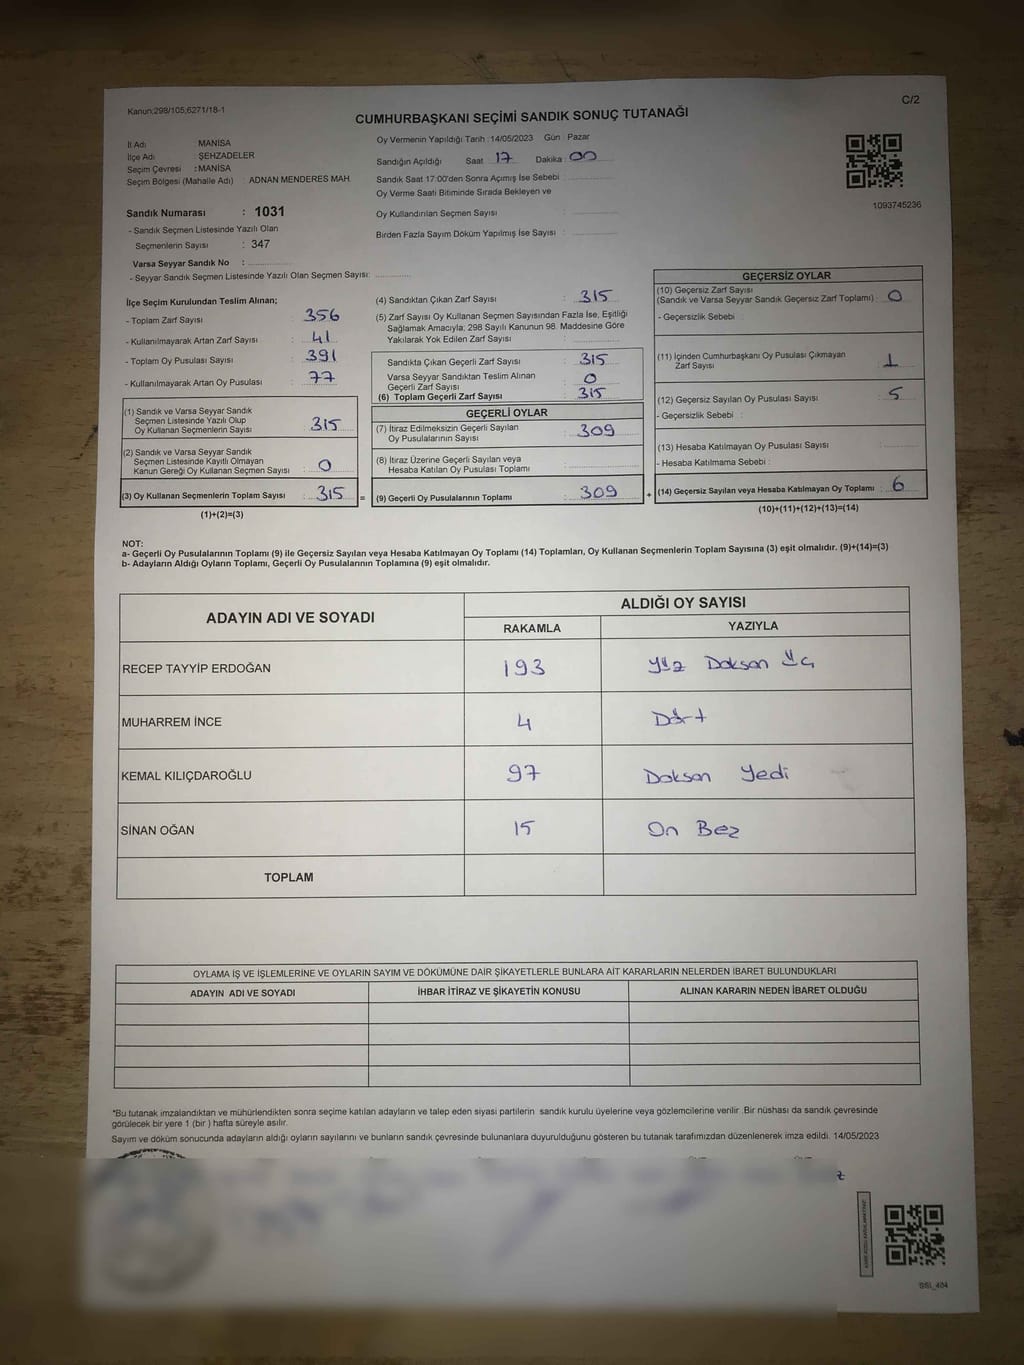 Kanun:298/105;6271/18-1
C/2
CUMHURBAŞKANI SEÇİMİ SANDIK SONUÇ TUTANAĞI
İl Adı : MANİSA
İlçe Adı : ŞEHZADELER
Seçim Çevresi : MANİSA
Seçim Bölgesi (Mahalle Adı) : ADNAN MENDERES MAH.
Sandık Numarası : 1031
- Sandık Seçmen Listesinde Yazılı Olan
Seçmenlerin Sayısı : 347
Varsa Seyyar Sandık No :
- Seyyar Sandık Seçmen Listesinde Yazılı Olan Seçmen Sayısı:
Oy Vermenin Yapıldığı Tarih :14/05/2023 Gün : Pazar
Sandığın Açıldığı Saat 17 Dakika 00
Sandık Saat 17:00'den Sonra Açımış İse Sebebi :
Oy Verme Saati Bitiminde Sırada Bekleyen ve
Oy Kullandırılan Seçmen Sayısı :
Birden Fazla Sayım Döküm Yapılmış İse Sayısı :
1093745236
İlçe Seçim Kurulundan Teslim Alınan;
- Toplam Zarf Sayısı : 356
- Kullanılmayarak Artan Zarf Sayısı : 41
- Toplam Oy Pusulası Sayısı : 391
- Kullanılmayarak Artan Oy Pusulası : 77
(1) Sandık ve Varsa Seyyar Sandık
Seçmen Listesinde Yazılı Olup
Oy Kullanan Seçmenlerin Sayısı : 315
(2) Sandık ve Varsa Seyyar Sandık
Seçmen Listesinde Kayıtlı Olmayan
Kanun Gereği Oy Kullanan Seçmen Sayısı : 0
(3) Oy Kullanan Seçmenlerin Toplam Sayısı : 315 =
(1)+(2)=(3)
(4) Sandıktan Çıkan Zarf Sayısı : 315
(5) Zarf Sayısı Oy Kullanan Seçmen Sayısından Fazla İse, Eşitliği
Sağlamak Amacıyla; 298 Sayılı Kanunun 98. Maddesine Göre
Yakılarak Yok Edilen Zarf Sayısı :
Sandıkta Çıkan Geçerli Zarf Sayısı : 315
Varsa Seyyar Sandıktan Teslim Alınan
Geçerli Zarf Sayısı : 0
(6) Toplam Geçerli Zarf Sayısı : 315
GEÇERLİ OYLAR
(7) İtiraz Edilmeksizin Geçerli Sayılan
Oy Pusulalarının Sayısı : 309
(8) İtiraz Üzerine Geçerli Sayılan veya
Hesaba Katılan Oy Pusulası Toplamı :
(9) Geçerli Oy Pusulalarının Toplamı : 309 +
GEÇERSİZ OYLAR
(10) Geçersiz Zarf Sayısı
(Sandık ve Varsa Seyyar Sandık Geçersiz Zarf Toplamı) : 0
- Geçersizlik Sebebi :
(11) İçinden Cumhurbaşkanı Oy Pusulası Çıkmayan
Zarf Sayısı : 1
(12) Geçersiz Sayılan Oy Pusulası Sayısı : 5
- Geçersizlik Sebebi :
(13) Hesaba Katılmayan Oy Pusulası Sayısı :
- Hesaba Katılmama Sebebi :
(14) Geçersiz Sayılan veya Hesaba Katılmayan Oy Toplamı : 6
(10)+(11)+(12)+(13)=(14)
NOT:
a- Geçerli Oy Pusulalarının Toplamı (9) ile Geçersiz Sayılan veya Hesaba Katılmayan Oy Toplamı (14) Toplamları, Oy Kullanan Seçmenlerin Toplam Sayısına (3) eşit olmalıdır. (9)+(14)=(3)
b- Adayların Aldığı Oyların Toplamı, Geçerli Oy Pusulalarının Toplamına (9) eşit olmalıdır.
ADAYIN ADI VE SOYADI ALDIĞI OY SAYISI
RAKAMLA YAZIYLA
RECEP TAYYİP ERDOĞAN 193 Yüz Doksan Üç
MUHARREM İNCE 4 Dört
KEMAL KILIÇDAROĞLU 97 Doksan Yedi
SİNAN OĞAN 15 On Beş
TOPLAM
OYLAMA İŞ VE İŞLEMLERİNE VE OYLARIN SAYIM VE DÖKÜMÜNE DAİR ŞİKAYETLERLE BUNLARA AİT KARARLARIN NELERDEN İBARET BULUNDUKLARI
ADAYIN ADI VE SOYADI İHBAR İTİRAZ VE ŞİKAYETİN KONUSU ALINAN KARARIN NEDEN İBARET OLDUĞU
*Bu tutanak imzalandıktan ve mühürlendikten sonra seçime katılan adayların ve talep eden siyasi partilerin sandık kurulu üyelerine veya gözlemcilerine verilir .Bir nüshası da sandık çevresinde
görülecek bir yere 1 (bir ) hafta süreyle asılır.
Sayım ve döküm sonucunda adayların aldığı oyların sayılarını ve bunların sandık çevresinde bulunanlara duyurulduğunu gösteren bu tutanak tarafımızdan düzenlenerek imza edildi. 14/05/2023